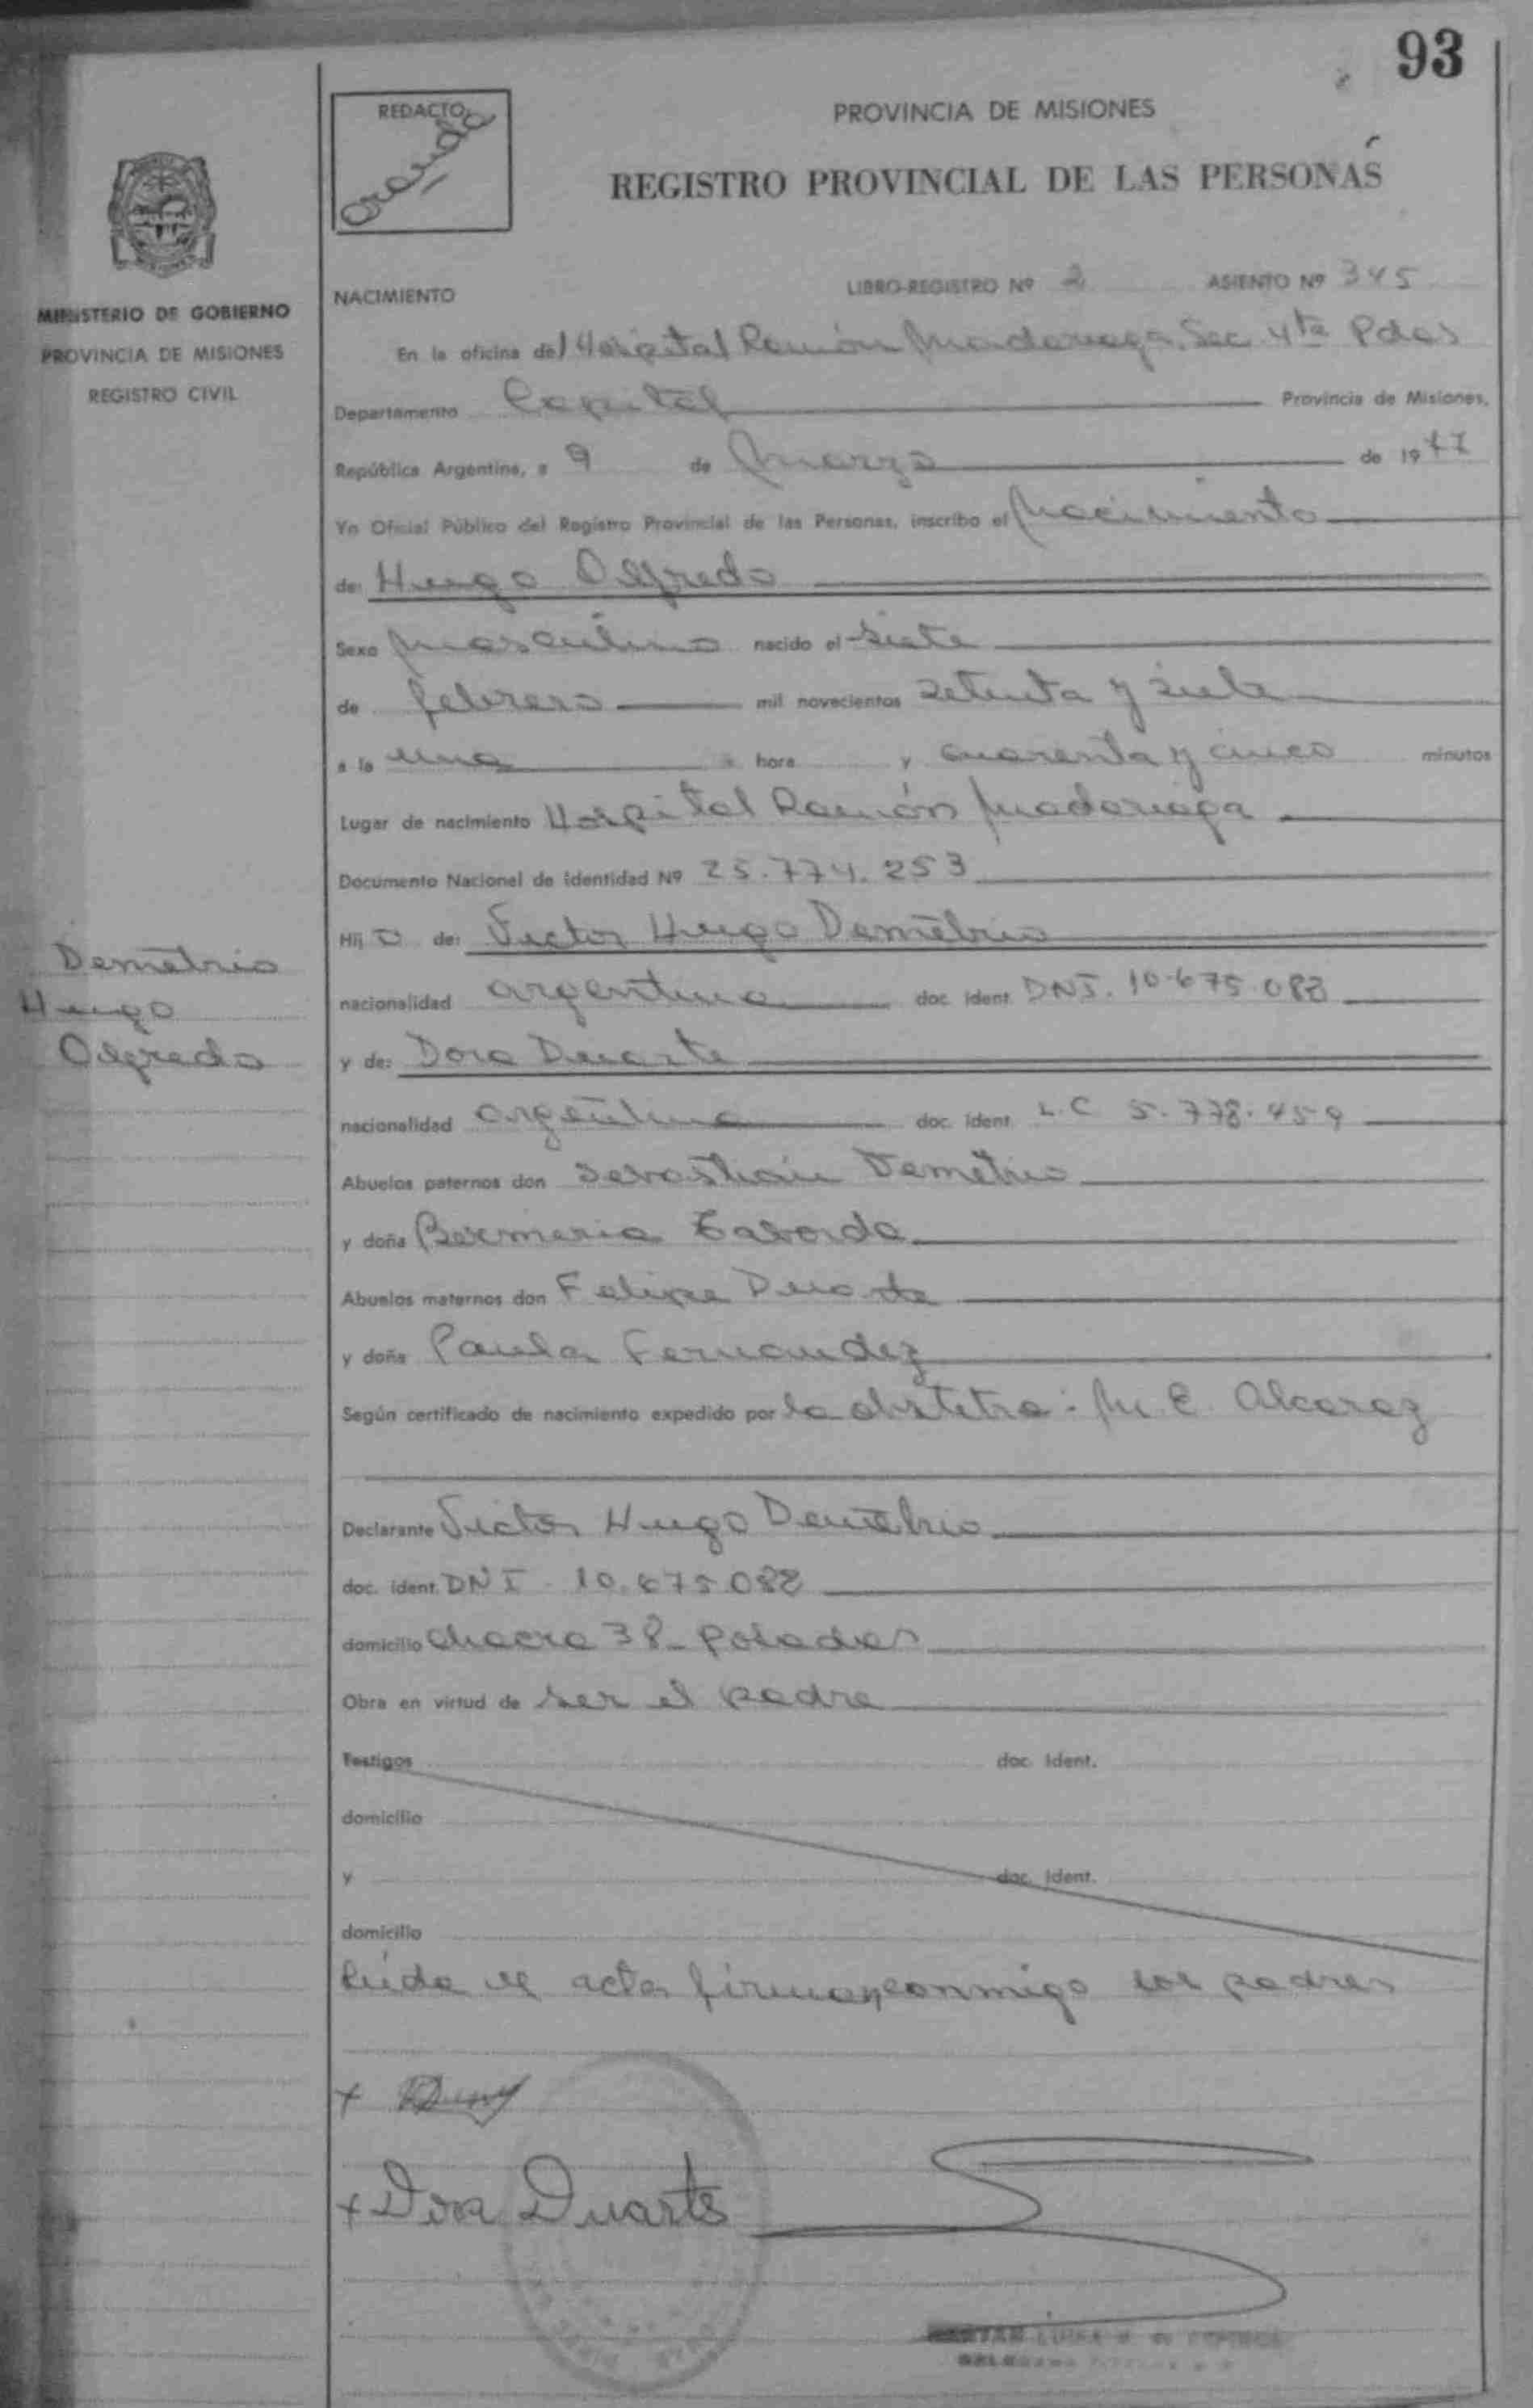 93
REDACTO
PROVINCIA DE MISIONES
REGISTRO PROVINCIAL DE LAS PERSONAS
MINISTERIO DE GOBIERNO
PROVINCIA DE MISIONES
REGISTRO CIVIL
NACIMIENTO
LIBRO-REGISTRO Nº 2 ASIENTO Nº 345
En la oficina del Hospital Ramón Madariaga, Sec. 4ta Pdas
Departamento Capital Provincia de Misiones,
República Argentina, a 9 de Marzo de 1977
Yo Oficial Público del Registro Provincial de las Personas, inscribo el Nacimiento
de: Hugo Alfredo
Sexo Masculino nacido el siete
de febrero mil novecientos setenta y siete
a la una hora y cuarenta y cinco minutos
Lugar de nacimiento Hospital Ramón Madariaga
Documento Nacional de Identidad Nº 25.774.253
Hij o de: Victor Hugo Demetrio
Demetrio
Hugo
Alfredo
nacionalidad argentina doc. ident. DNI. 10.675.088
y de: Dora Duarte
nacionalidad argentina doc. ident. L.C 5.778.459
Abuelos paternos don Sebastian Demetrio
y doña Taborda
Abuelos maternos don Felipe Duarte
y doña Paula Fernandez
Según certificado de nacimiento expedido por la obstetra: M. E. Alcaraz
Declarante Victor Hugo Demetrio
doc. ident. DNI. 10.675.088
domicilio chacra 38 - Posadas
Obra en virtud de ser el padre
Testigos doc. ident.
domicilio
y doc. ident.
domicilio
Leida el acta firman conmigo los padres
x
x Dora Duarte